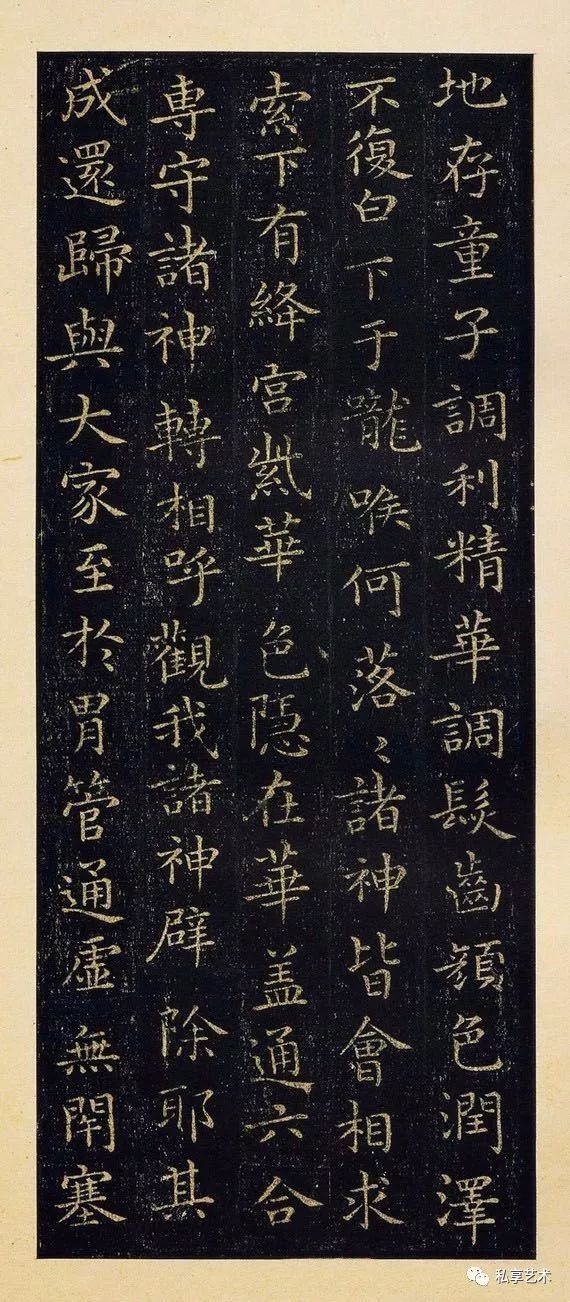 地存童子調利精華調髮齒顔色潤澤
不復白下于嚨喉何落〻諸神皆會相求
索下有絳宮紫華色隱在華盖通六合
專守諸神轉相呼觀我諸神辟除耶其
成還歸與大家至於胃管通虛無閉塞
私享艺术